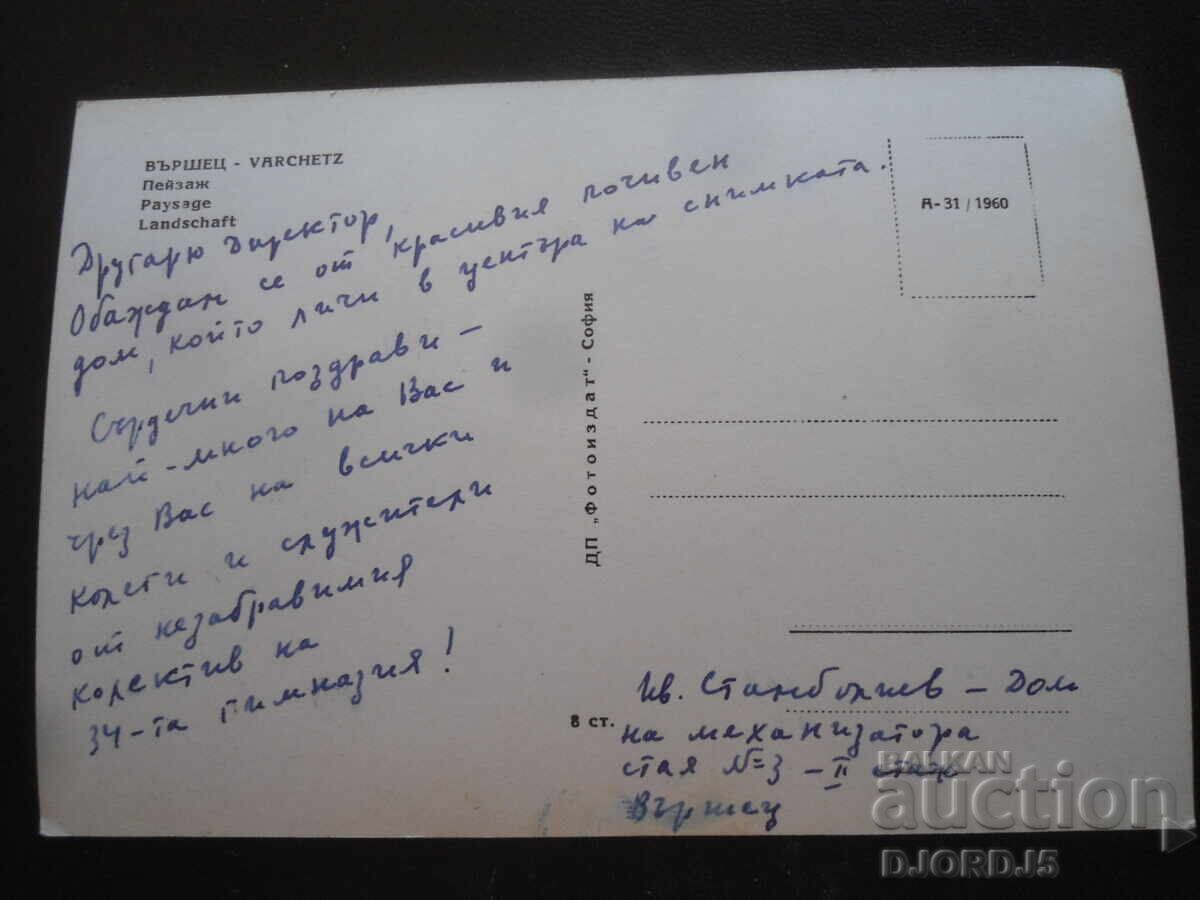 ВЪРШЕЦ - VARCHETZ
Пейзаж
Paysage
Landschaft
Другарю Директор,
Обаждам се от красивия почивен
дом, който личи в центъра на снимката.
Сърдечни поздрави –
най-много на Вас и
чрез Вас на всички
колеги и служители
от незабравимия
колектив на
34-та гимназия!
ДП „Фотоиздат" - София
8 ст.
А-31 / 1960
Ив. Стамболиев – Дом
на механизатора
стая №3 – II етаж
Вършец
BALKAN
auction
DJORDJ5